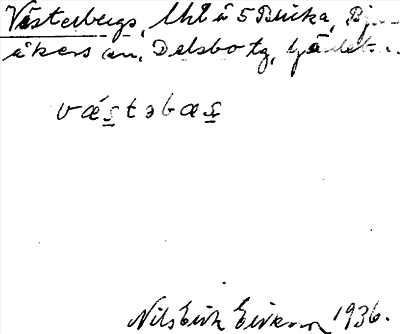 Västerbergs, lht å 5 Blicka, Bju-
åkers sn, Delsbo tg, Gästr.
væ´s̲təbæs̲
Nils Erik Eriksson 1936.